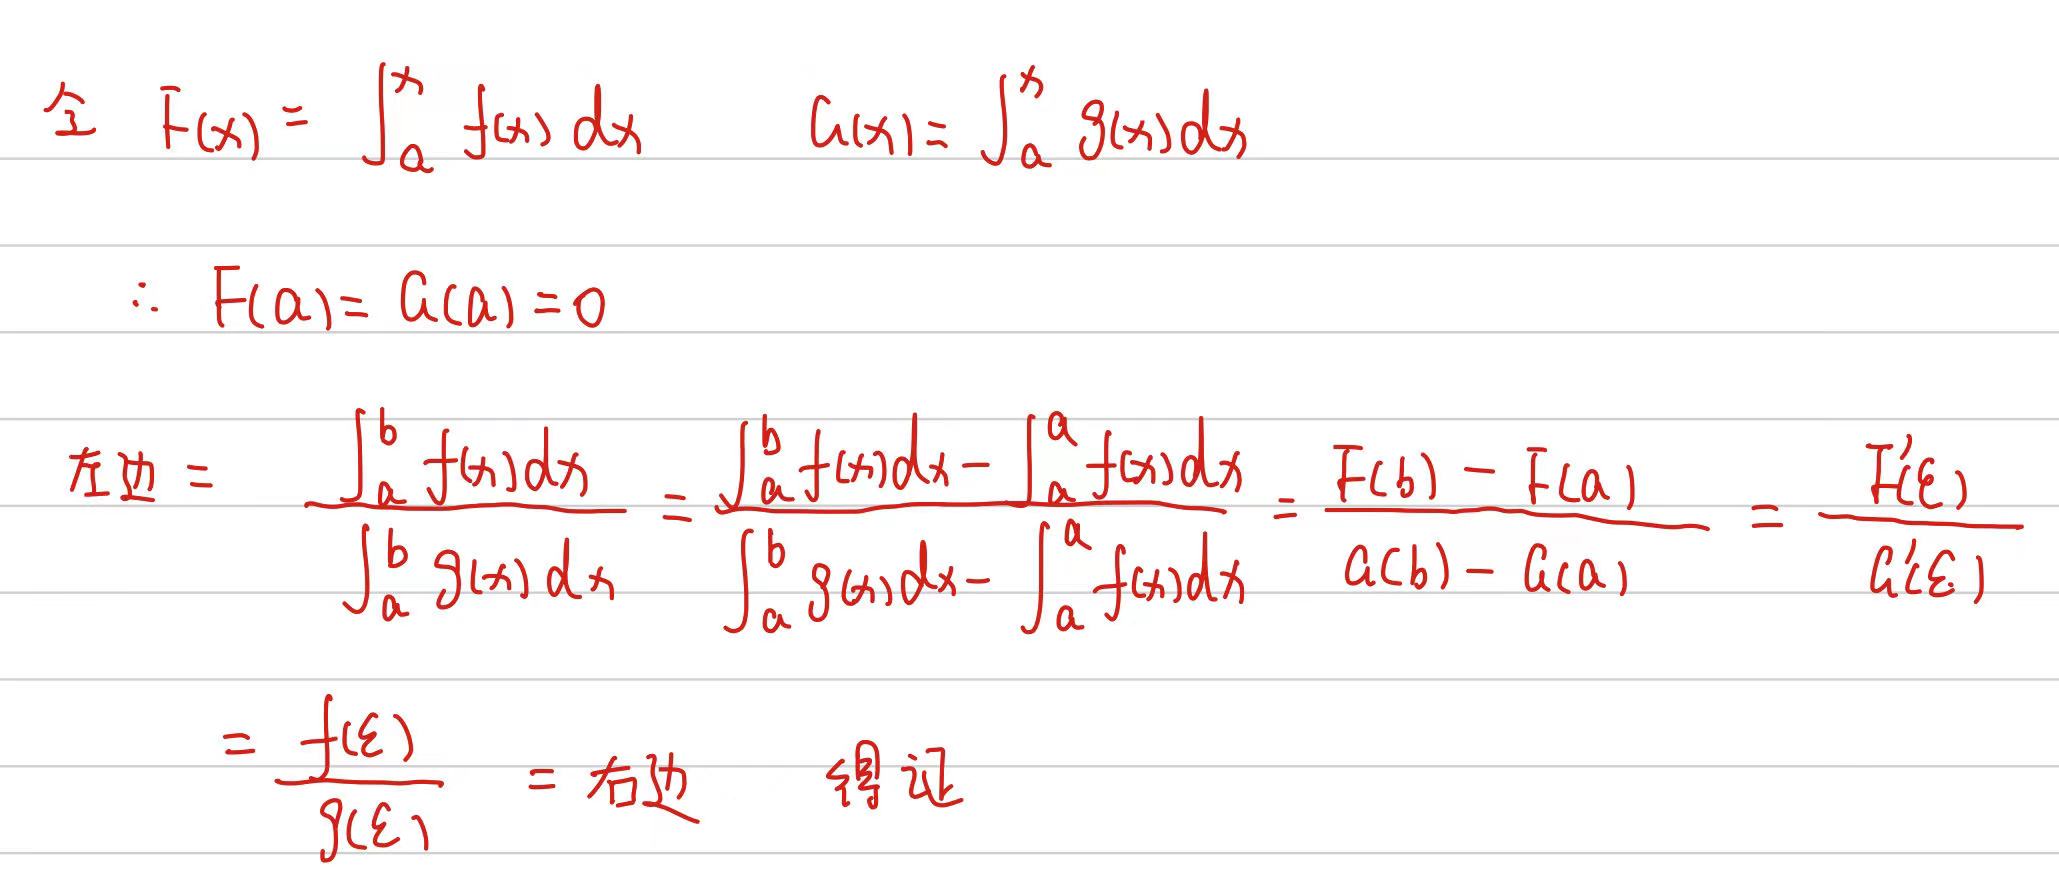 令 F(x) = ∫_a^x f(x) dx G(x) = ∫_a^x g(x) dx
∴ F(a) = G(a) = 0
左边 = \frac{∫_a^b f(x) dx}{∫_a^b g(x) dx} = \frac{∫_a^b f(x) dx - ∫_a^a f(x) dx}{∫_a^b g(x) dx - ∫_a^a f(x) dx} = \frac{F(b) - F(a)}{G(b) - G(a)} = \frac{F'(ξ)}{G'(ξ)}
= \frac{f(ξ)}{g(ξ)} = 右边 得证